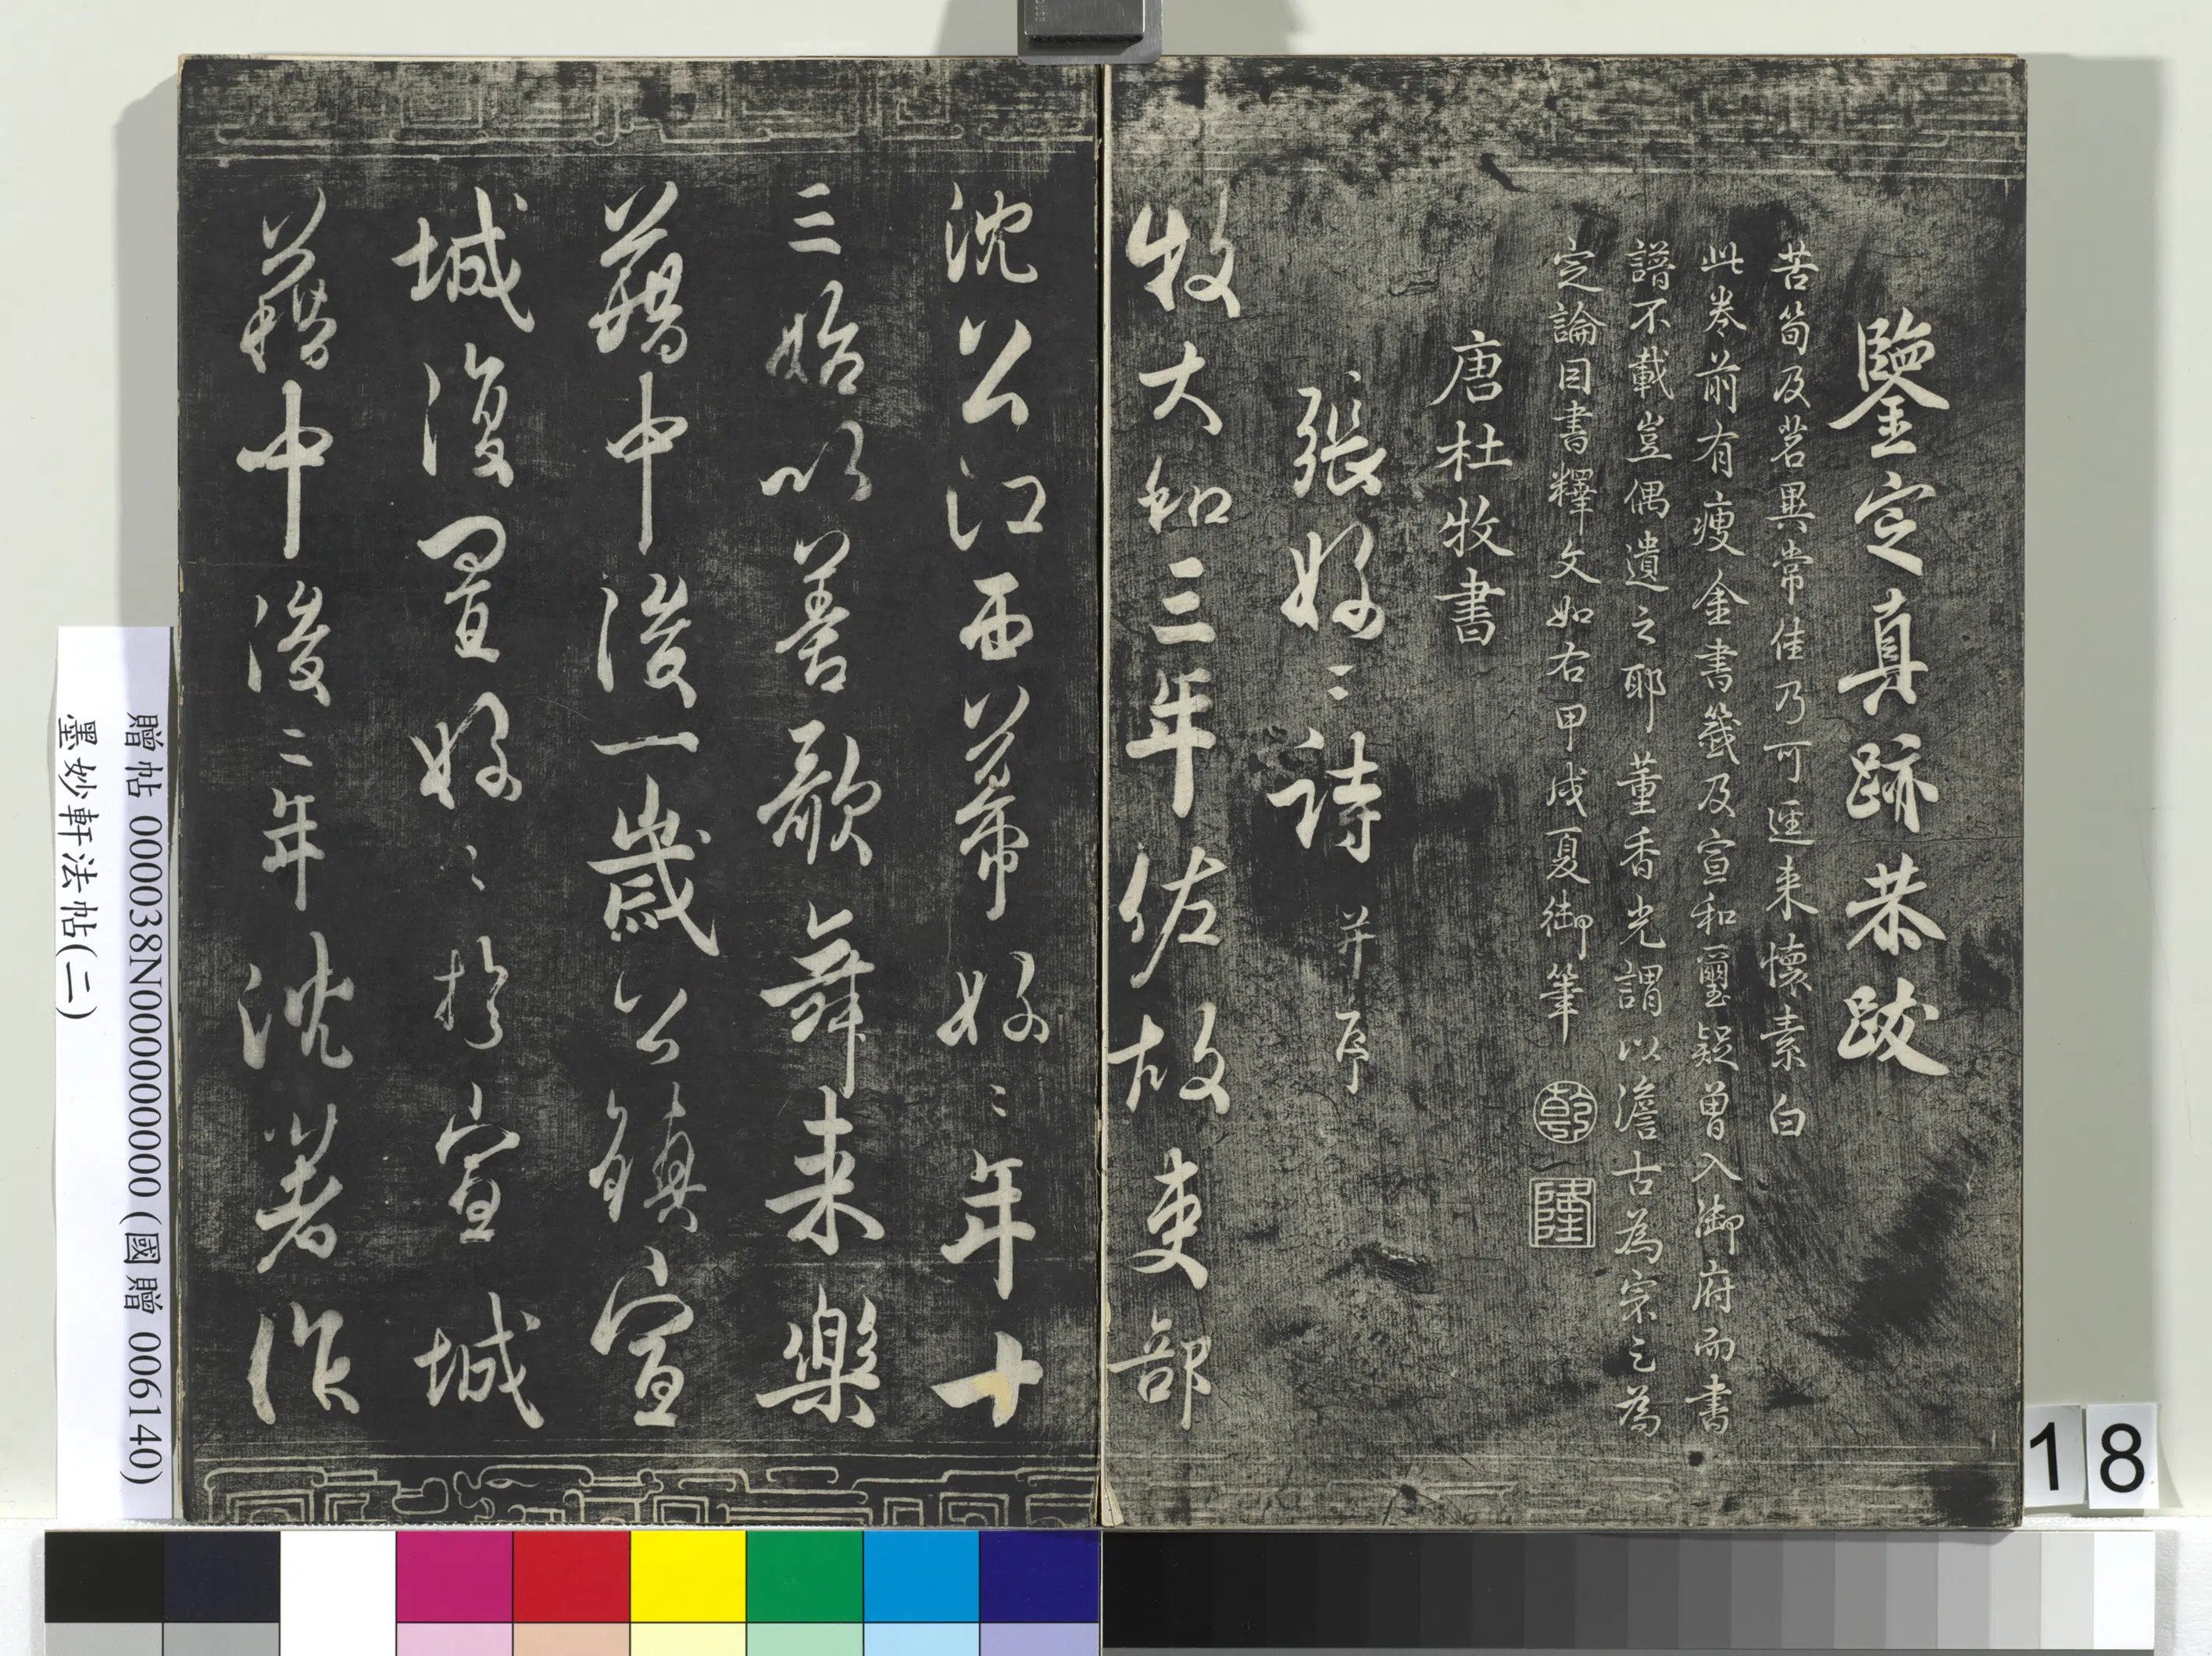 鑒定真跡恭跋
苦筍及茗異常佳乃可逕來懷素白
此卷前有瘦金書籤及宣和璽疑曾入御府而書
譜不載豈偶遺之耶董香光謂以澹古為宗之為
定論目書釋文如右甲戌夏御筆
乾
隆
唐杜牧書
張好〻詩并序
牧大和三年佐故吏部
沈公江西幕好〻年十
三始以善歌舞来樂
籍中後一歲公鎮宣
城復置好〻於宣城
籍中後二年沈著作
贈帖 000038N000000000 (國贈 006140)
墨妙軒法帖(二)
18